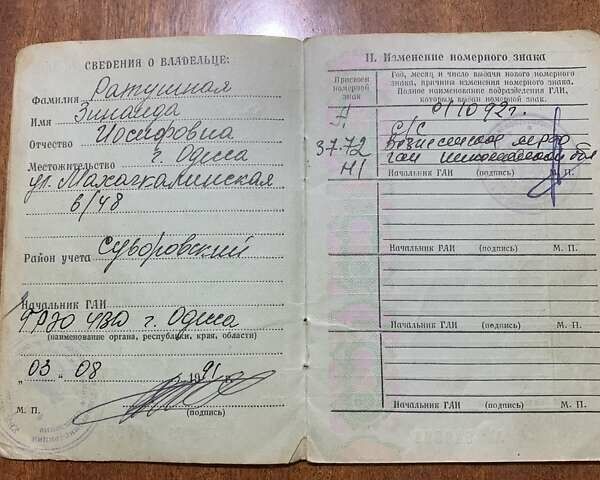 СВЕДЕНИЯ О ВЛАДЕЛЬЦЕ:
Фамилия Ратушная
Имя Зинаида
Отчество Иосифовна
Местожительство г. Одесса
ул. Махачкалинская
6/48
Район учета Суворовский
Начальник ГАИ
г. Одесса
(наименование органа, республики, края, области)
„03„ 08 1991
М. П. (подпись)
II. Изменение номерного знака
Присвоен номерной знак
Год, месяц и число выдачи нового номерного
знака, причина изменения номерного знака.
Полное наименование подразделения ГАИ,
которым выдан номерной знак.
1092г.
С/С
37.72
Вознесенское
Начальник ГАИ (подпись) М. П.
Начальник ГАИ (подпись) М. П.
Начальник ГАИ (подпись) М. П.
Начальник ГАИ (подпись) М. П.